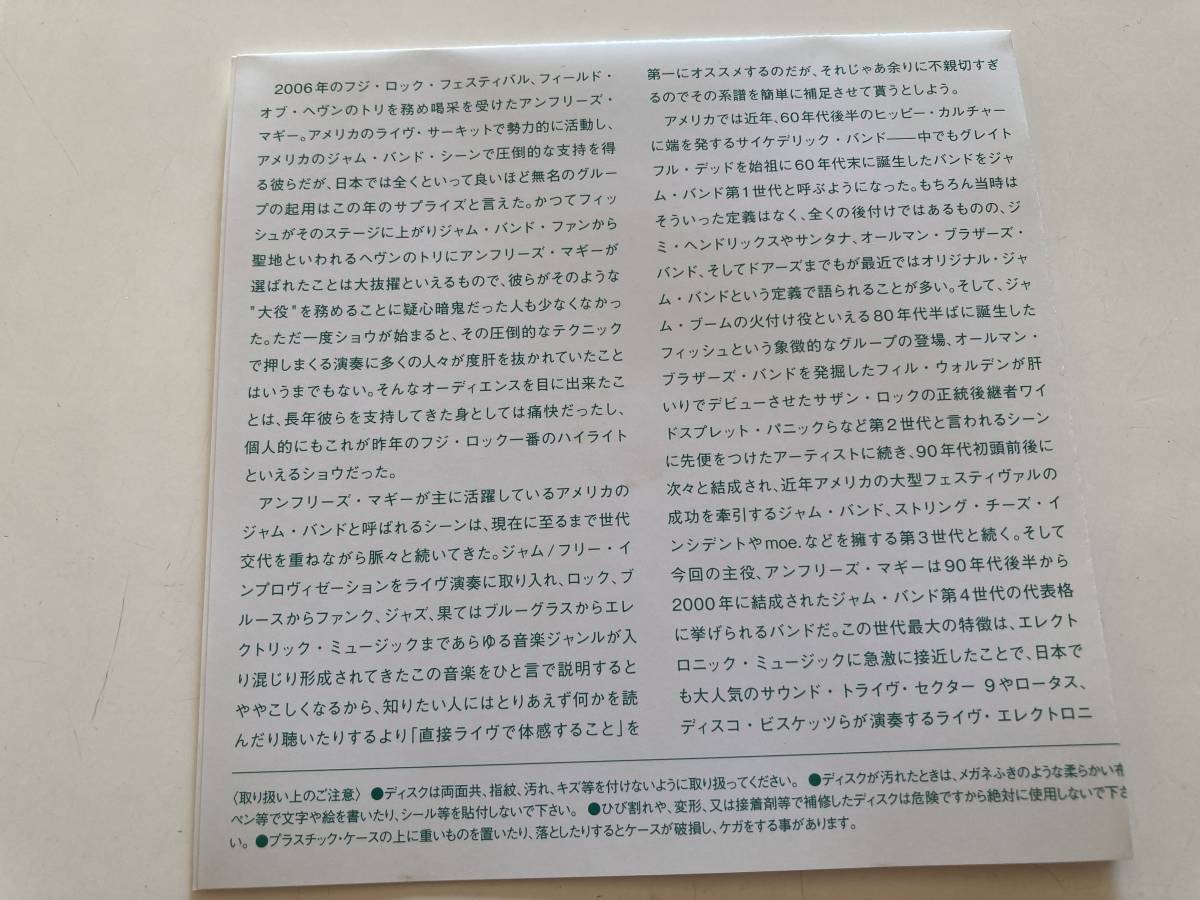 2006年のフジ・ロック・フェスティバル、フィールド・
オブ・ヘヴンのトリを務め喝采を受けたアンフリーズ・
マギー。アメリカのライヴ・サーキットで勢力的に活動し、
アメリカのジャム・バンド・シーンで圧倒的な支持を得
る彼らだが、日本では全くといって良いほど無名のグルー
プの起用はこの年のサプライズと言えた。かつてフィッ
シュがそのステージに上がりジャム・バンド・ファンから
聖地といわれるヘヴンのトリにアンフリーズ・マギーが
選ばれたことは大抜擢といえるもので、彼らがそのような
"大役"を務めることに疑心暗鬼だった人も少なくなかっ
た。ただ一度ショウが始まると、その圧倒的なテクニック
で押しまくる演奏に多くの人々が度肝を抜かれていたこと
はいうまでもない。そんなオーディエンスを目に出来たこ
とは、長年彼らを支持してきた身としては痛快だったし、
個人的にもこれが昨年のフジ・ロック一番のハイライト
といえるショウだった。
アンフリーズ・マギーが主に活躍しているアメリカの
ジャム・バンドと呼ばれるシーンは、現在に至るまで世代
交代を重ねながら脈々と続いてきた。ジャム/フリー・イ
ンプロヴィゼーションをライヴ演奏に取り入れ、ロック、ブ
ルースからファンク、ジャズ、果てはブルーグラスからエレ
クトリック・ミュージックまであらゆる音楽ジャンルが入
り混じり形成されてきたこの音楽をひと言で説明すると
ややこしくなるから、知りたい人にはとりあえず何かを読
んだり聴いたりするより「直接ライヴで体感すること」を
第一にオススメするのだが、それじゃあ余りに不親切すぎ
るのでその系譜を簡単に補足させて貰うとしよう。
アメリカでは近年、60年代後半のヒッピー・カルチャー
に端を発するサイケデリック・バンド――中でもグレイト
フル・デッドを始祖に60年代末に誕生したバンドをジャ
ム・バンド第1世代と呼ぶようになった。もちろん当時は
そういった定義はなく、全くの後付けではあるものの、ジ
ミ・ヘンドリックスやサンタナ、オールマン・ブラザーズ・
バンド、そしてドアーズまでもが最近ではオリジナル・ジャ
ム・バンドという定義で語られることが多い。そして、ジャ
ム・ブームの火付け役といえる80年代半ばに誕生した
フィッシュという象徴的なグループの登場、オールマン・
ブラザーズ・バンドを発掘したフィル・ウォルデンが肝
いりでデビューさせたサザン・ロックの正統後継者ワイ
ドスプレット・パニックらなど第2世代と言われるシーン
に先便をつけたアーティストに続き、90年代初頭前後に
次々と結成され、近年アメリカの大型フェスティヴァルの
成功を牽引するジャム・バンド、ストリング・チーズ・イ
ンシデントやmoe.などを擁する第3世代と続く。そして
今回の主役、アンフリーズ・マギーは90年代後半から
2000年に結成されたジャム・バンド第4世代の代表格
に挙げられるバンドだ。この世代最大の特徴は、エレクト
ロニック・ミュージックに急激に接近したことで、日本で
も大人気のサウンド・トライヴ・セクター 9やロータス、
ディスコ・ビスケッツらが演奏するライヴ・エレクトロニ
〈取り扱い上のご注意〉 ●ディスクは両面共、指紋、汚れ、キズ等を付けないように取り扱ってください。 ●ディスクが汚れたときは、メガネふきのような柔らかい布
ペン等で文字や絵を書いたり、シール等を貼付しないで下さい。 ●ひび割れや、変形、又は接着剤等で補修したディスクは危険ですから絶対に使用しないで下さ
い。 ●プラスチック・ケースの上に重いものを置いたり、落としたりするとケースが破損し、ケガをする事があります。